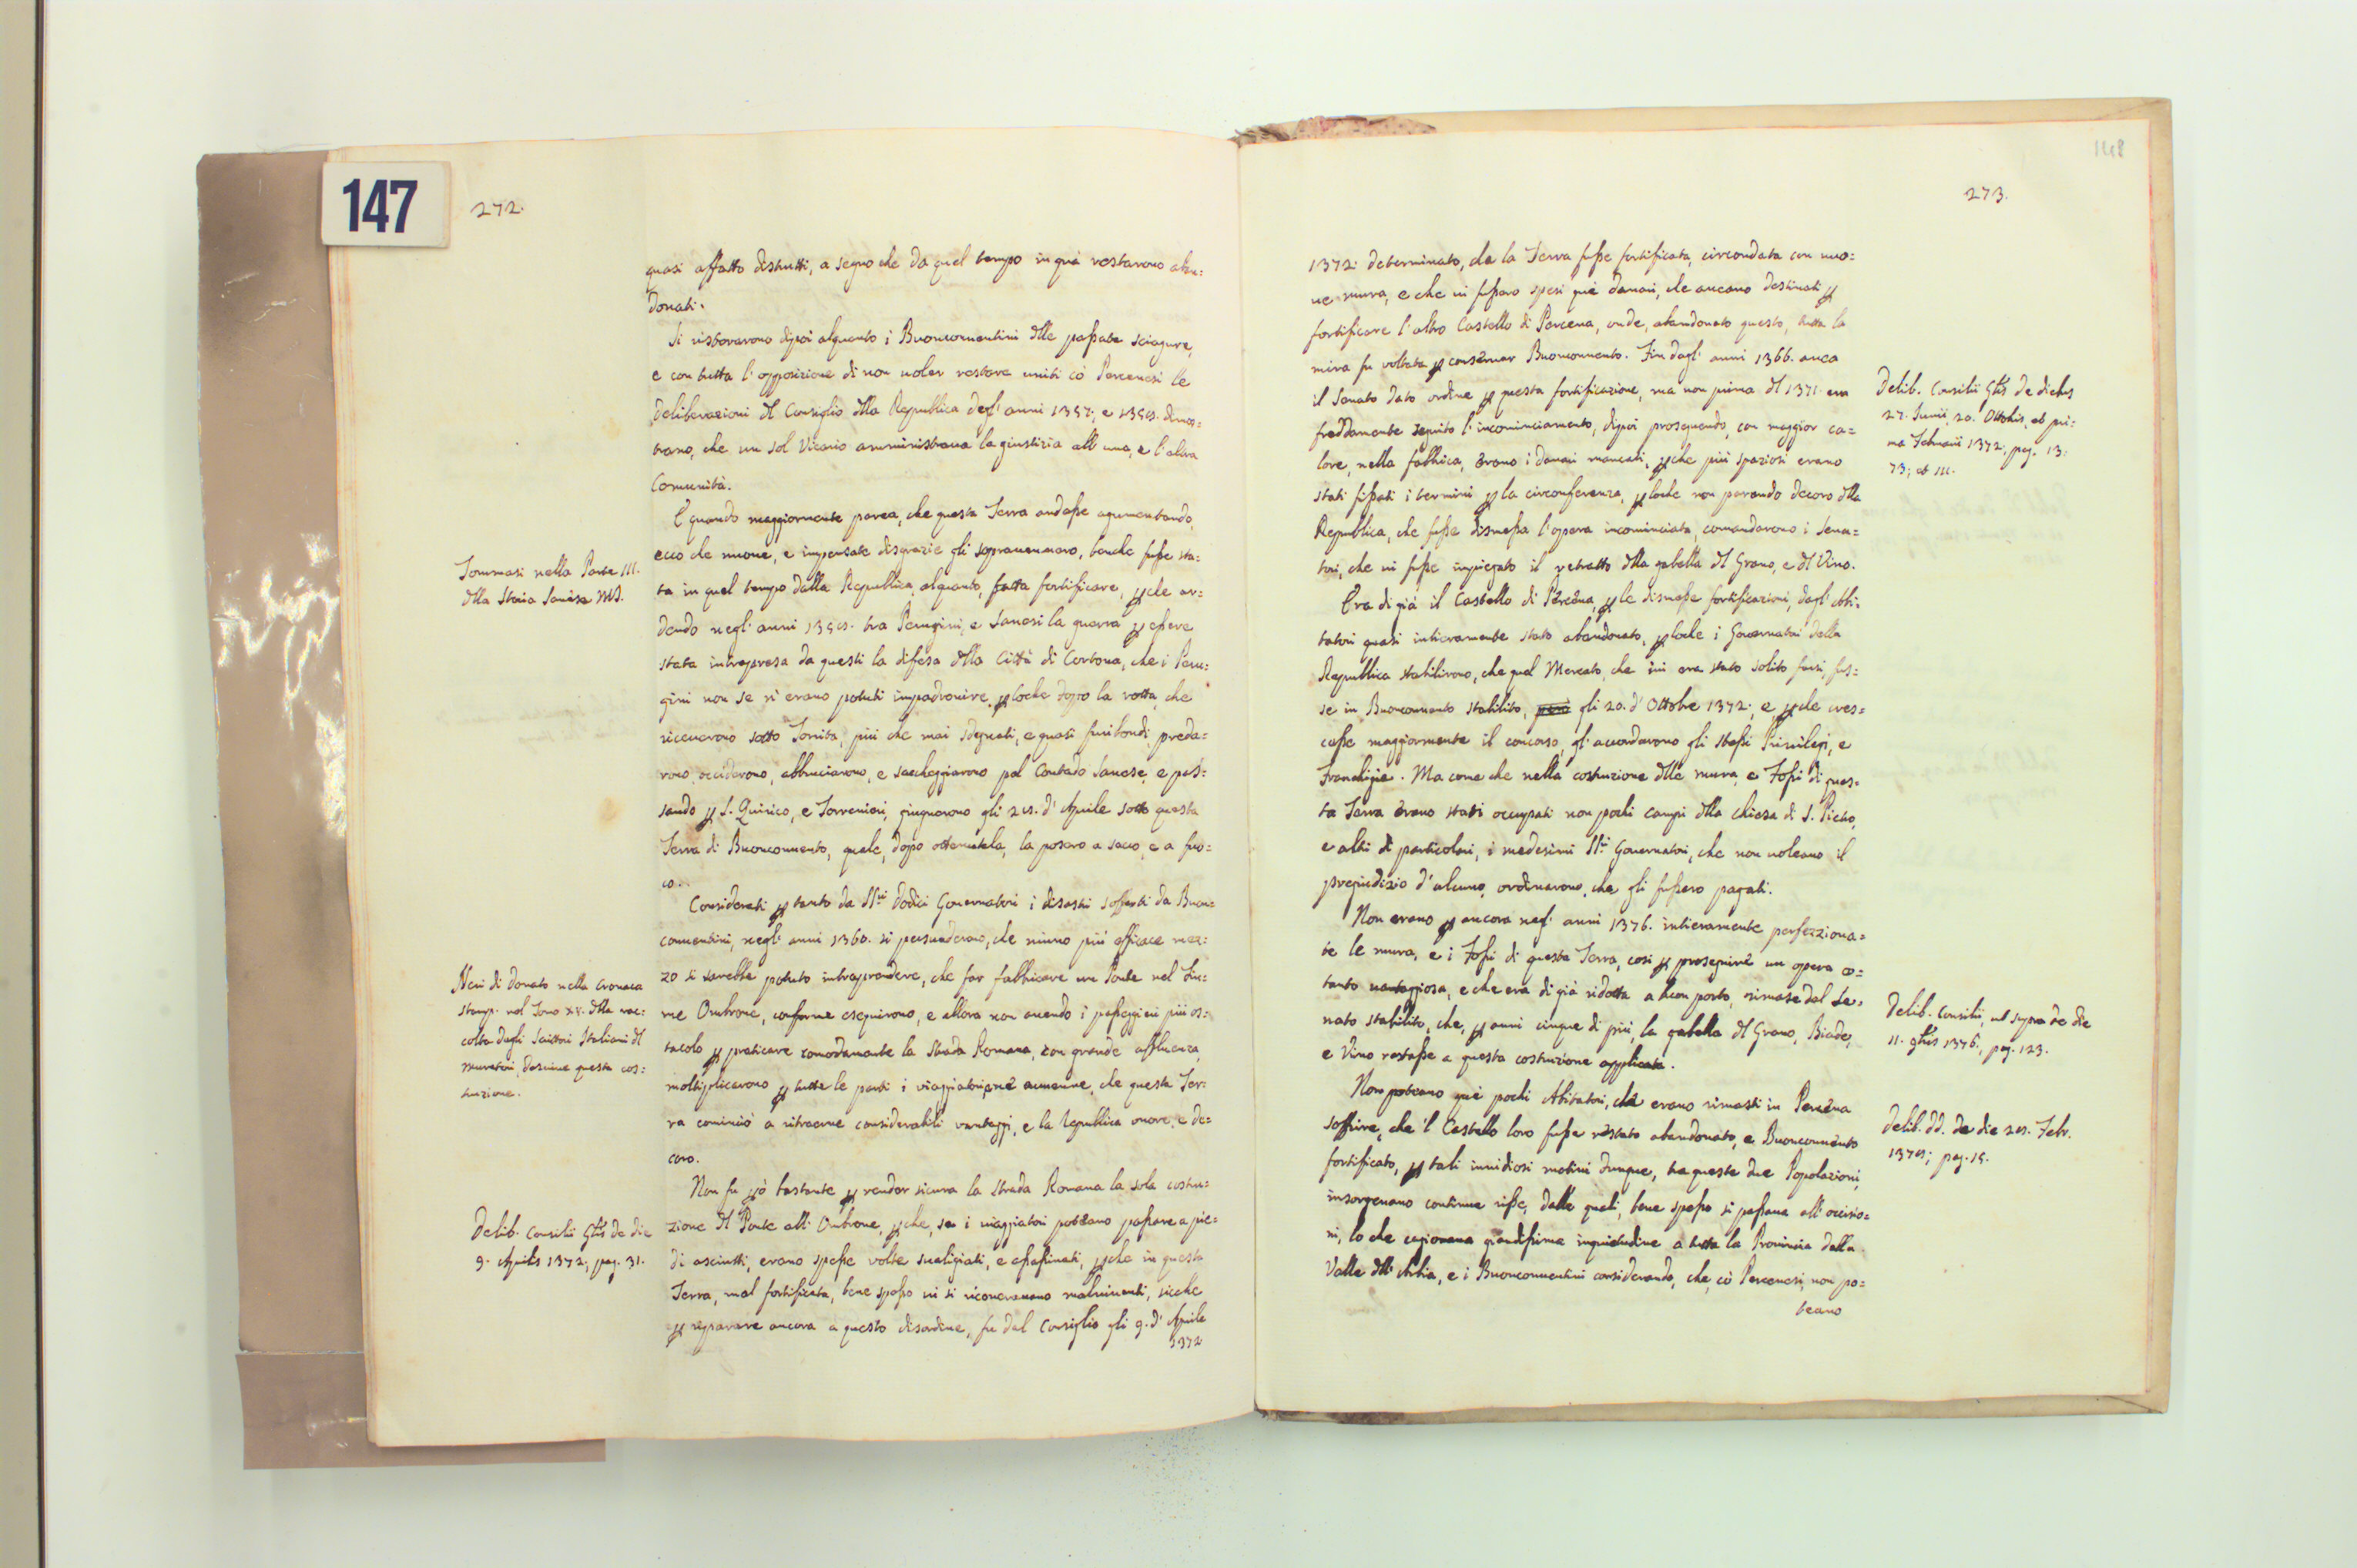 147
272.
quasi affatto distrutti, a segno che da quel tempo in quà restarono aban=
donati.
Si ristorarono dipoi alquanto i Buonconventini dlle passate sciagure,
e con tutta l'opposizione di non voler restare uniti cò Percenesi le
deliberazioni dl Consiglio dlla Republica degl'anni 1357; e 1359. dimos=
trano, che un sol Vicario amministraua la giustizia all'una, e l'altra
Comunità.
E quando maggiormente parea, che questa Terra andasse agumentando,
ecco che nuoue, e impensate disgrazie gli soprauennero, benche fusse sta=
Tommasi nella Parte III.
dlla Storia Sanese MS.
ta in quel tempo dalla Republica alquanto fatta fortificare, pche ar=
dendo negl'anni 1358. tra Perugini, e Sanesi la guerra p essere
stata intrapresa da questi la difesa dlla Città di Cortona, che i Peru=
gini non se n'erano potuti impadronire, ploche dopo la rotta, che
riceuerono sotto Torrita, più che mai sdegnati, e quasi furibondi preda=
rono, occiderono, abbruciarono, e saccheggiarono pel Contado Sanese, e pas=
sando p S. Quirico, e Torrenieri, giugnerono gli 28. d'Aprile sotto questa
Terra di Buonconuento, quale, dopo ottenutala, la posero a sacco, e a fuo=
co.
Considerati p tanto da SSri Dodici Gouernatori i disastri sofferti da Buon=
conuentini, negl'anni 1360. si persuaderono, che niuno più efficace mez=
zo si sarebbe potuto intraprendere, che far fabbricare un Ponte nel fiu=
me Ombrone, conforme eseguirono, e allora non auendo i passeggieri più os=
tacolo p praticare comodamente la Strada Romana, con grande affluenza,
moltiplicarono p tutte le parti i viaggiatori, onè auuenne, che questa Ter=
ra cominciò a ritraerne considerabili vantaggi, e la Republica onore, e de=
coro.
Neri di Donato nella Cronaca
stamp. nel Tomo XV. dlla rac=
colta degli Scrittori Italiani dl
Muratori, descriue questa cos=
truzione.
Non fu pò bastante p render sicura la Strada Romana la sola costru=
zione dl Ponte all'Ombrone, pche, se i viaggiatori potèano passare a pie=
di asciutti, erano spesse volte sualigiati, e assassinati, pche in questa
Terra, mal fortificata, bene spesso ui si ricouerauano maluiuenti, sicche
p riparare ancora a questo disordine, fu dal Consiglio gli 9. d'Aprile
1372
Delib. Consilii Gtis de die
9. Aprilis 1372, pag. 31.
148
273.
1372. determinato, che la Terra fusse fortificata, circondata con nuo=
ue mura, e che ui fussero spesi què danari, che aueano destinati p
fortificare l'altro Castello di Percena, onde, abandonato questo, tutta la
mira fu voltata p conseruar Buonconuento. Fin dagl'anni 1366. auea
il Senato dato ordine p questa fortificazione, ma non prima dl 1371. era
freddamente seguito l'incominciamento, dipoi proseguendo, con maggior ca=
lore, nella fabbrica, èrano i danari mancati, pche più spaziosi erano
stati fissati i termini p la circonferenza, ploche non parendo decoro dlla
Republica, che fusse dismessa l'opera incominciata, comandarono i Sena=
tori, che ui fusse impiegato il retratto dlla gabella dl Grano, e dl Vino.
Delib. Consilii Gtis de diebus
27. Iunii, 20. Ottobris, et pri:
ma Februarii 1372, pag. 13:
73; et 111.
Era di già il Castello di Percèna, p le dismesse fortificazioni, dagl'abbi=
tatori quasi intieramente stato abandonato, ploche i Gouernatori della
Republica stabilirono, che quel Mercato, che iui era stato solito farsi, fus=
se in Buonconuento stabilito, però gli 20. d'Ottobre 1372; e, pche cres=
cesse maggiormente il concorso, gl'accordarono gli stessi Priuilegi, e
Franchigie. Ma come che nella costruzione dlle mura, e Fossi di ques=
ta Terra èrano stati occupati non pochi campi dlla Chiesa di S. Pietro,
e altri di particolari, i medesimi SSri Gouernatori, che non voleano il
pregiudizio d'alcuno, ordinarono, che gli fussero pagati.
Non erano p ancora negl'anni 1376. intieramente perfezziona=
te le mura, e i Fossi di questa Terra, così p proseguire un opera co=
tanto vantaggiosa, e che era di già ridotta a buon porto, rimase dal Se=
nato stabilito, che, p anni cinque di più, la gabella dl Grano, Biade,
e Vino restasse a questa costruzione applicata.
Delib. Consilii, ut supra de die
11. 9bris 1376., pag. 123.
Non poteano què pochi Abitatori, chè erano rimasti in Percèna
soffrire, che 'l Castello loro fusse restato abandonato, e Buonconuento
fortificato, p tali inuidiosi motiui dunque, tra queste due Popolazioni,
insorgeuano continue risse, dalle quali, bene spesso si passaua all'occisio=
ni, lo che cagionaua grandissima inquietudine a tutta la Prouincia della
Valle dll'Arbia, e i Buonconuentini considerando, che, cò Percenesi, non po=
teano
Delib. dd. de die 28. Febr.
1378; pag. 15.